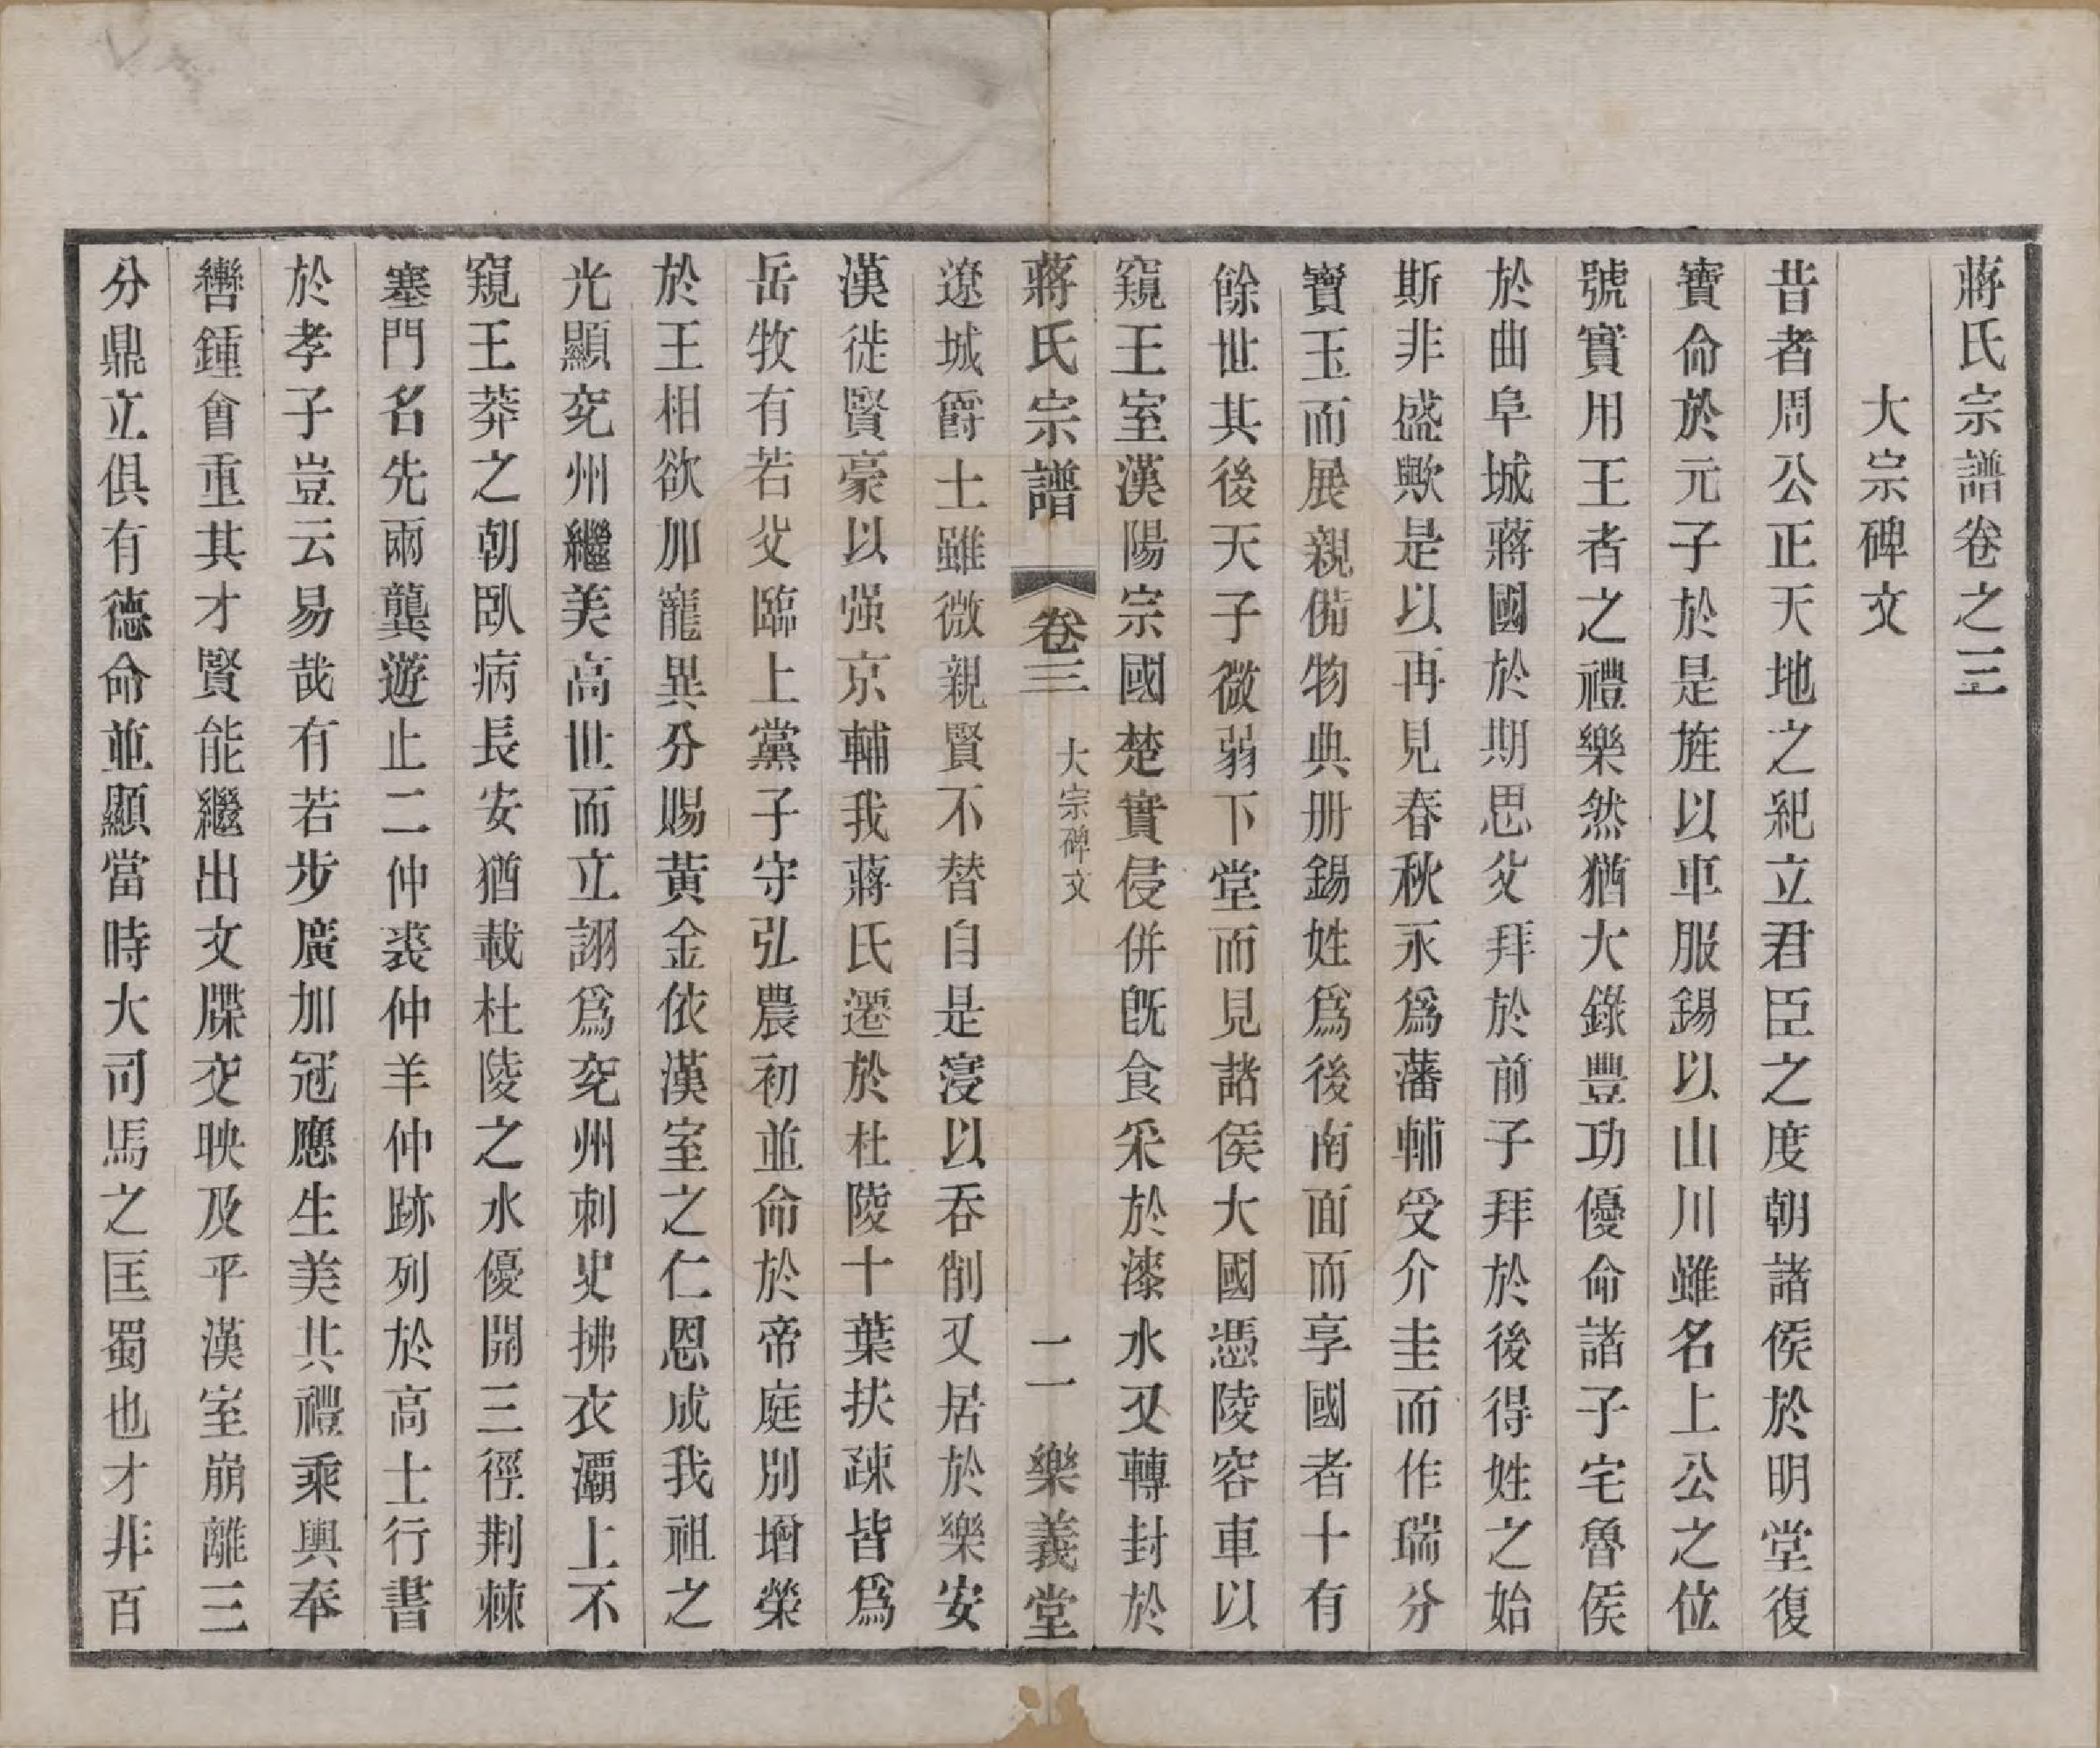 蔣氏宗譜卷之三
大宗碑文
昔者周公正天地之紀立君臣之度朝諸侯於明堂復
寶命於元子於是旌以車服錫以山川雖名上公之位
號實用王者之禮樂然猶大錄豐功優命諸子宅魯侯
於曲阜城蔣國於期思父拜於前子拜於後得姓之始
斯非盛歟是以再見春秋永爲藩輔受介圭而作瑞分
寶玉而展親備物典册錫姓爲後南面而享國者十有
餘世其後天子微弱下堂而見諸侯大國憑陵容車以
窺王室漢陽宗國楚實侵併旣食采於漆水又轉封於
蔣氏宗譜
卷三
大宗碑文
二
樂義堂
遼城爵土雖微親賢不替自是寖以吞削又居於樂安
漢徙賢豪以强京輔我蔣氏遷於杜陵十葉扶疎皆爲
岳牧有若父臨上黨子守弘農初並命於帝庭別增榮
於王相欲加寵異分賜黃金依漢室之仁恩成我祖之
光顯兖州繼美高世而立詡爲兖州刺史拂衣灞上不
窺王莽之朝臥病長安猶載杜陵之水優開三徑荆棘
塞門名先兩龔遊止二仲裘仲羊仲跡列於高士行書
於孝子豈云易哉有若步廣加冠應生美共禮乘輿奉
轡鍾會重其才賢能繼出文牒交映及平漢室崩離三
分鼎立俱有德命並顯當時大司馬之匡蜀也才非百